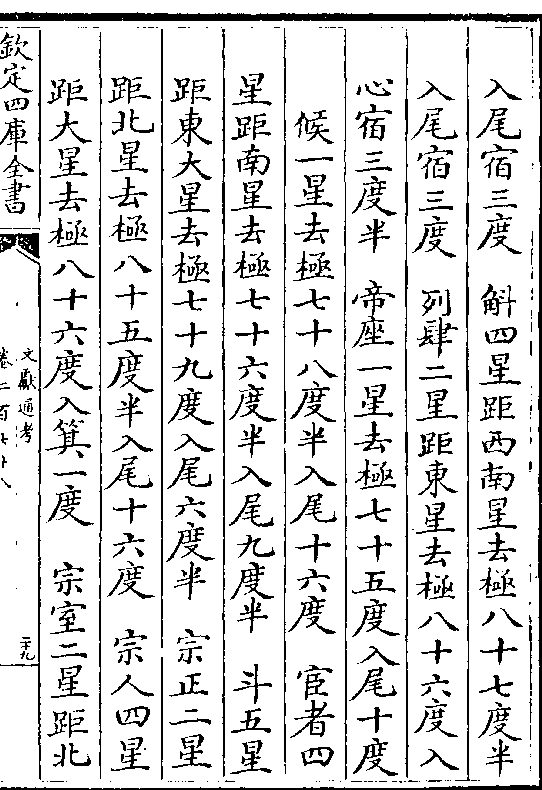 入尾宿三度　斛四星距西南星去極八十七度半
入尾宿三度　列肆二星距東星去極八十六度入
心宿三度半　帝座一星去極七十五度入尾十度
候一星去極七十八度半入尾十六度　宦者四
星距南星去極七十六度半入尾九度半　斗五星
距東大星去極七十九度入尾六度半　宗正二星
距北星去極八十五度半入尾十六度　宗人四星
距大星去極八十六度入箕一度　宗室二星距北
欽定四庫全書
文獻通考
卷二百七十八
二十九